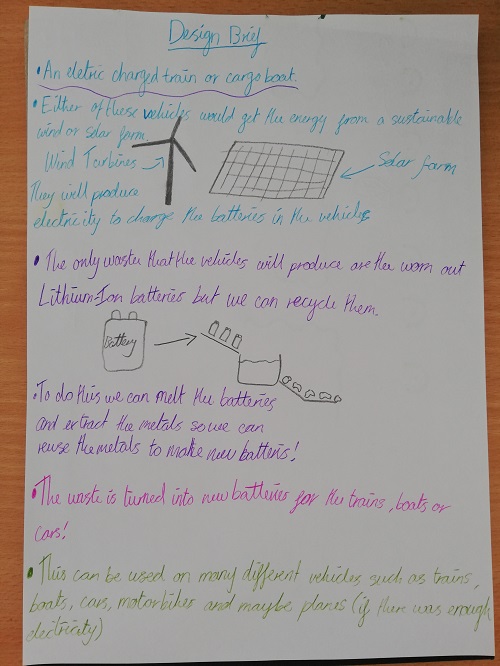 Design Brief
• An eletric charged train or cargo boat.
• Either of these vehicles would get the energy from a sustainable
wind or solar farm.
Wind Turbines
Solar farm
They will produce
electricity to charge the batteries in the vehicles
• The only waster that the vehicles will produce are the worn out
Lithium-Ion batteries but we can recycle them.
Battery
• To do this we can melt the batteries
and extract the metals so we can
reuse the metals to make new batteris!
• The waste is turned into new batteries for the trains, boats or
cars!
• This can be used on many different vehicles such as trains,
boats, cars, motorbikes and maybe planes (if there was enough
electricity)